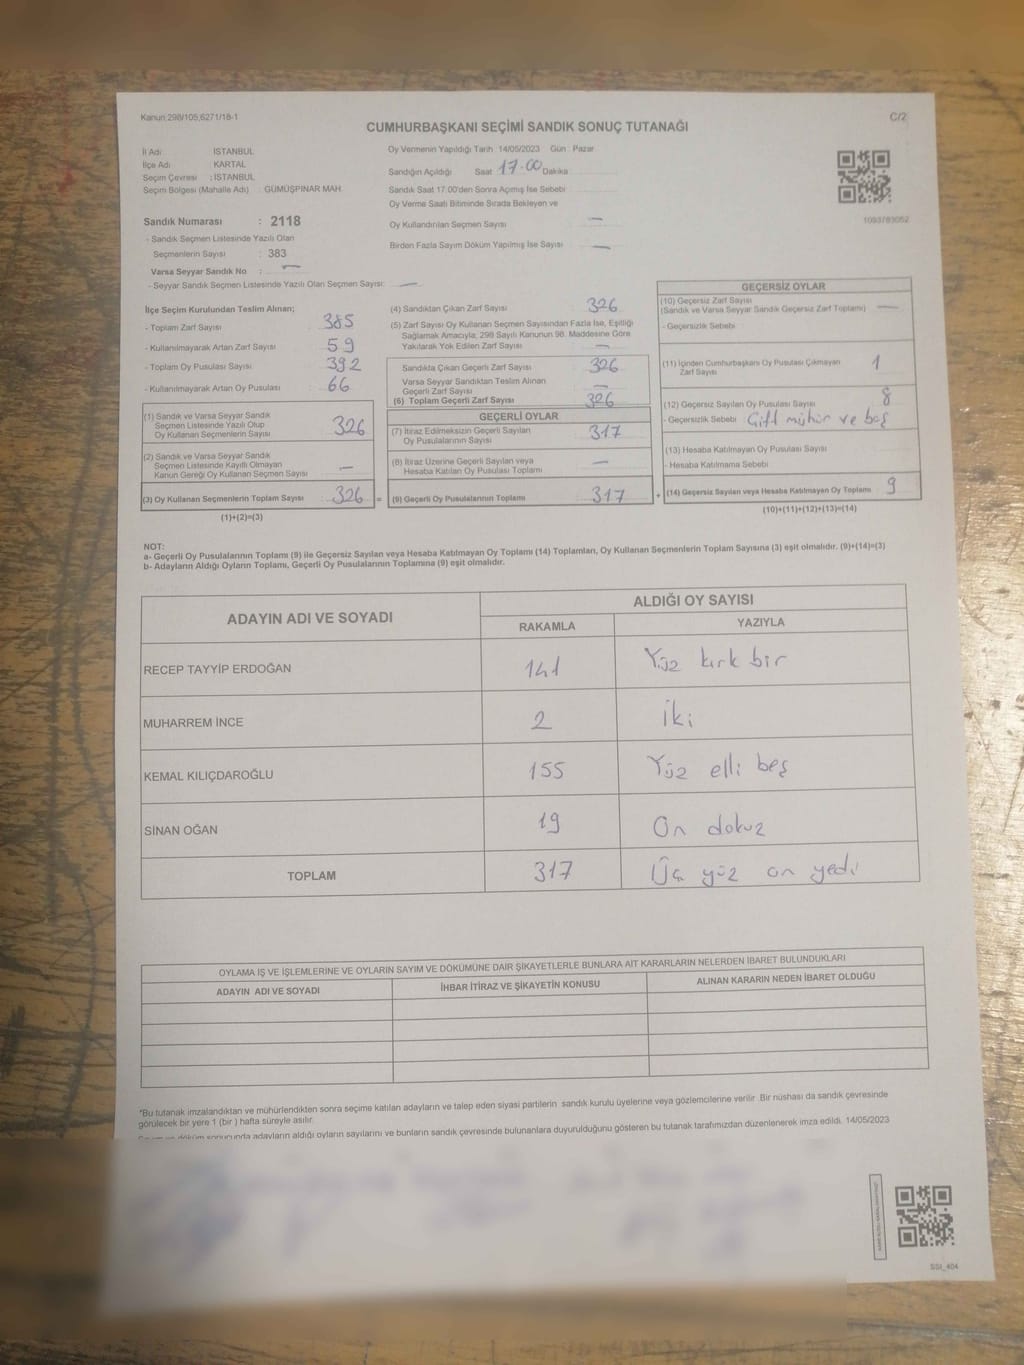 Kanun 298/105,6271/18-1
C/2
CUMHURBAŞKANI SEÇİMİ SANDIK SONUÇ TUTANAĞI
İl Adı : İSTANBUL
İlçe Adı : KARTAL
Seçim Çevresi : İSTANBUL
Seçim Bölgesi (Mahalle Adı) : GÜMÜŞPINAR MAH.
Sandık Numarası : 2118
- Sandık Seçmen Listesinde Yazılı Olan
Seçmenlerin Sayısı : 383
Varsa Seyyar Sandık No : —
- Seyyar Sandık Seçmen Listesinde Yazılı Olan Seçmen Sayısı: —
Oy Vermenin Yapıldığı Tarih : 14/05/2023 Gün : Pazar
Sandığın Açıldığı Saat 17.00 Dakika
Sandık Saat 17.00'den Sonra Açılmış İse Sebebi
Oy Verme Saati Bitiminde Sırada Bekleyen ve
Oy Kullandırılan Seçmen Sayısı —
Birden Fazla Sayım Döküm Yapılmış İse Sayısı —
1093783052
İlçe Seçim Kurulundan Teslim Alınan;
- Toplam Zarf Sayısı 385
- Kullanılmayarak Artan Zarf Sayısı 59
- Toplam Oy Pusulası Sayısı 392
- Kullanılmayarak Artan Oy Pusulası 66
(1) Sandık ve Varsa Seyyar Sandık
Seçmen Listesinde Yazılı Olup
Oy Kullanan Seçmenlerin Sayısı 326
(2) Sandık ve Varsa Seyyar Sandık
Seçmen Listesinde Kayıtlı Olmayan
Kanun Gereği Oy Kullanan Seçmen Sayısı —
(3) Oy Kullanan Seçmenlerin Toplam Sayısı 326 =
(1)+(2)=(3)
(4) Sandıktan Çıkan Zarf Sayısı 326
(5) Zarf Sayısı Oy Kullanan Seçmen Sayısından Fazla İse, Eşitliği
Sağlamak Amacıyla, 298 Sayılı Kanunun 98. Maddesine Göre
Yakılarak Yok Edilen Zarf Sayısı —
Sandıkta Çıkan Geçerli Zarf Sayısı 326
Varsa Seyyar Sandıktan Teslim Alınan
Geçerli Zarf Sayısı —
(6) Toplam Geçerli Zarf Sayısı 326
GEÇERLİ OYLAR
(7) İtiraz Edilmeksizin Geçerli Sayılan
Oy Pusulalarının Sayısı 317
(8) İtiraz Üzerine Geçerli Sayılan veya
Hesaba Katılan Oy Pusulası Toplamı —
(9) Geçerli Oy Pusulalarının Toplamı 317 +
GEÇERSİZ OYLAR
(10) Geçersiz Zarf Sayısı
(Sandık ve Varsa Seyyar Sandık Geçersiz Zarf Toplamı) —
- Geçersizlik Sebebi
(11) İçinden Cumhurbaşkanı Oy Pusulası Çıkmayan
Zarf Sayısı 1
(12) Geçersiz Sayılan Oy Pusulası Sayısı 8
- Geçersizlik Sebebi Çift mühür ve boş
(13) Hesaba Katılmayan Oy Pusulası Sayısı
- Hesaba Katılmama Sebebi
(14) Geçersiz Sayılan veya Hesaba Katılmayan Oy Toplamı 9
(10)+(11)+(12)+(13)=(14)
NOT:
a- Geçerli Oy Pusulalarının Toplamı (9) ile Geçersiz Sayılan veya Hesaba Katılmayan Oy Toplamı (14) Toplamları, Oy Kullanan Seçmenlerin Toplam Sayısına (3) eşit olmalıdır. (9)+(14)=(3)
b- Adayların Aldığı Oyların Toplamı, Geçerli Oy Pusulalarının Toplamına (9) eşit olmalıdır.
ADAYIN ADI VE SOYADI
ALDIĞI OY SAYISI
RAKAMLA YAZIYLA
RECEP TAYYİP ERDOĞAN 141 Yüz kırk bir
MUHARREM İNCE 2 İki
KEMAL KILIÇDAROĞLU 155 Yüz elli beş
SİNAN OĞAN 19 On dokuz
TOPLAM 317 Üç yüz on yedi
OYLAMA İŞ VE İŞLEMLERİNE VE OYLARIN SAYIM VE DÖKÜMÜNE DAİR ŞİKAYETLERLE BUNLARA AİT KARARLARIN NELERDEN İBARET BULUNDUKLARI
ADAYIN ADI VE SOYADI İHBAR İTİRAZ VE ŞİKAYETİN KONUSU ALINAN KARARIN NEDEN İBARET OLDUĞU
*Bu tutanak imzalandıktan ve mühürlendikten sonra seçime katılan adayların ve talep eden siyasi partilerin sandık kurulu üyelerine veya gözlemcilerine verilir. Bir nüshası da sandık çevresinde
görülecek bir yere 1 (bir ) hafta süreyle asılır.
döküm sonucunda adayların aldığı oyların sayılarını ve bunların sandık çevresinde bulunanlara duyurulduğunu gösteren bu tutanak tarafımızdan düzenlenerek imza edildi. 14/05/2023
SSI_404